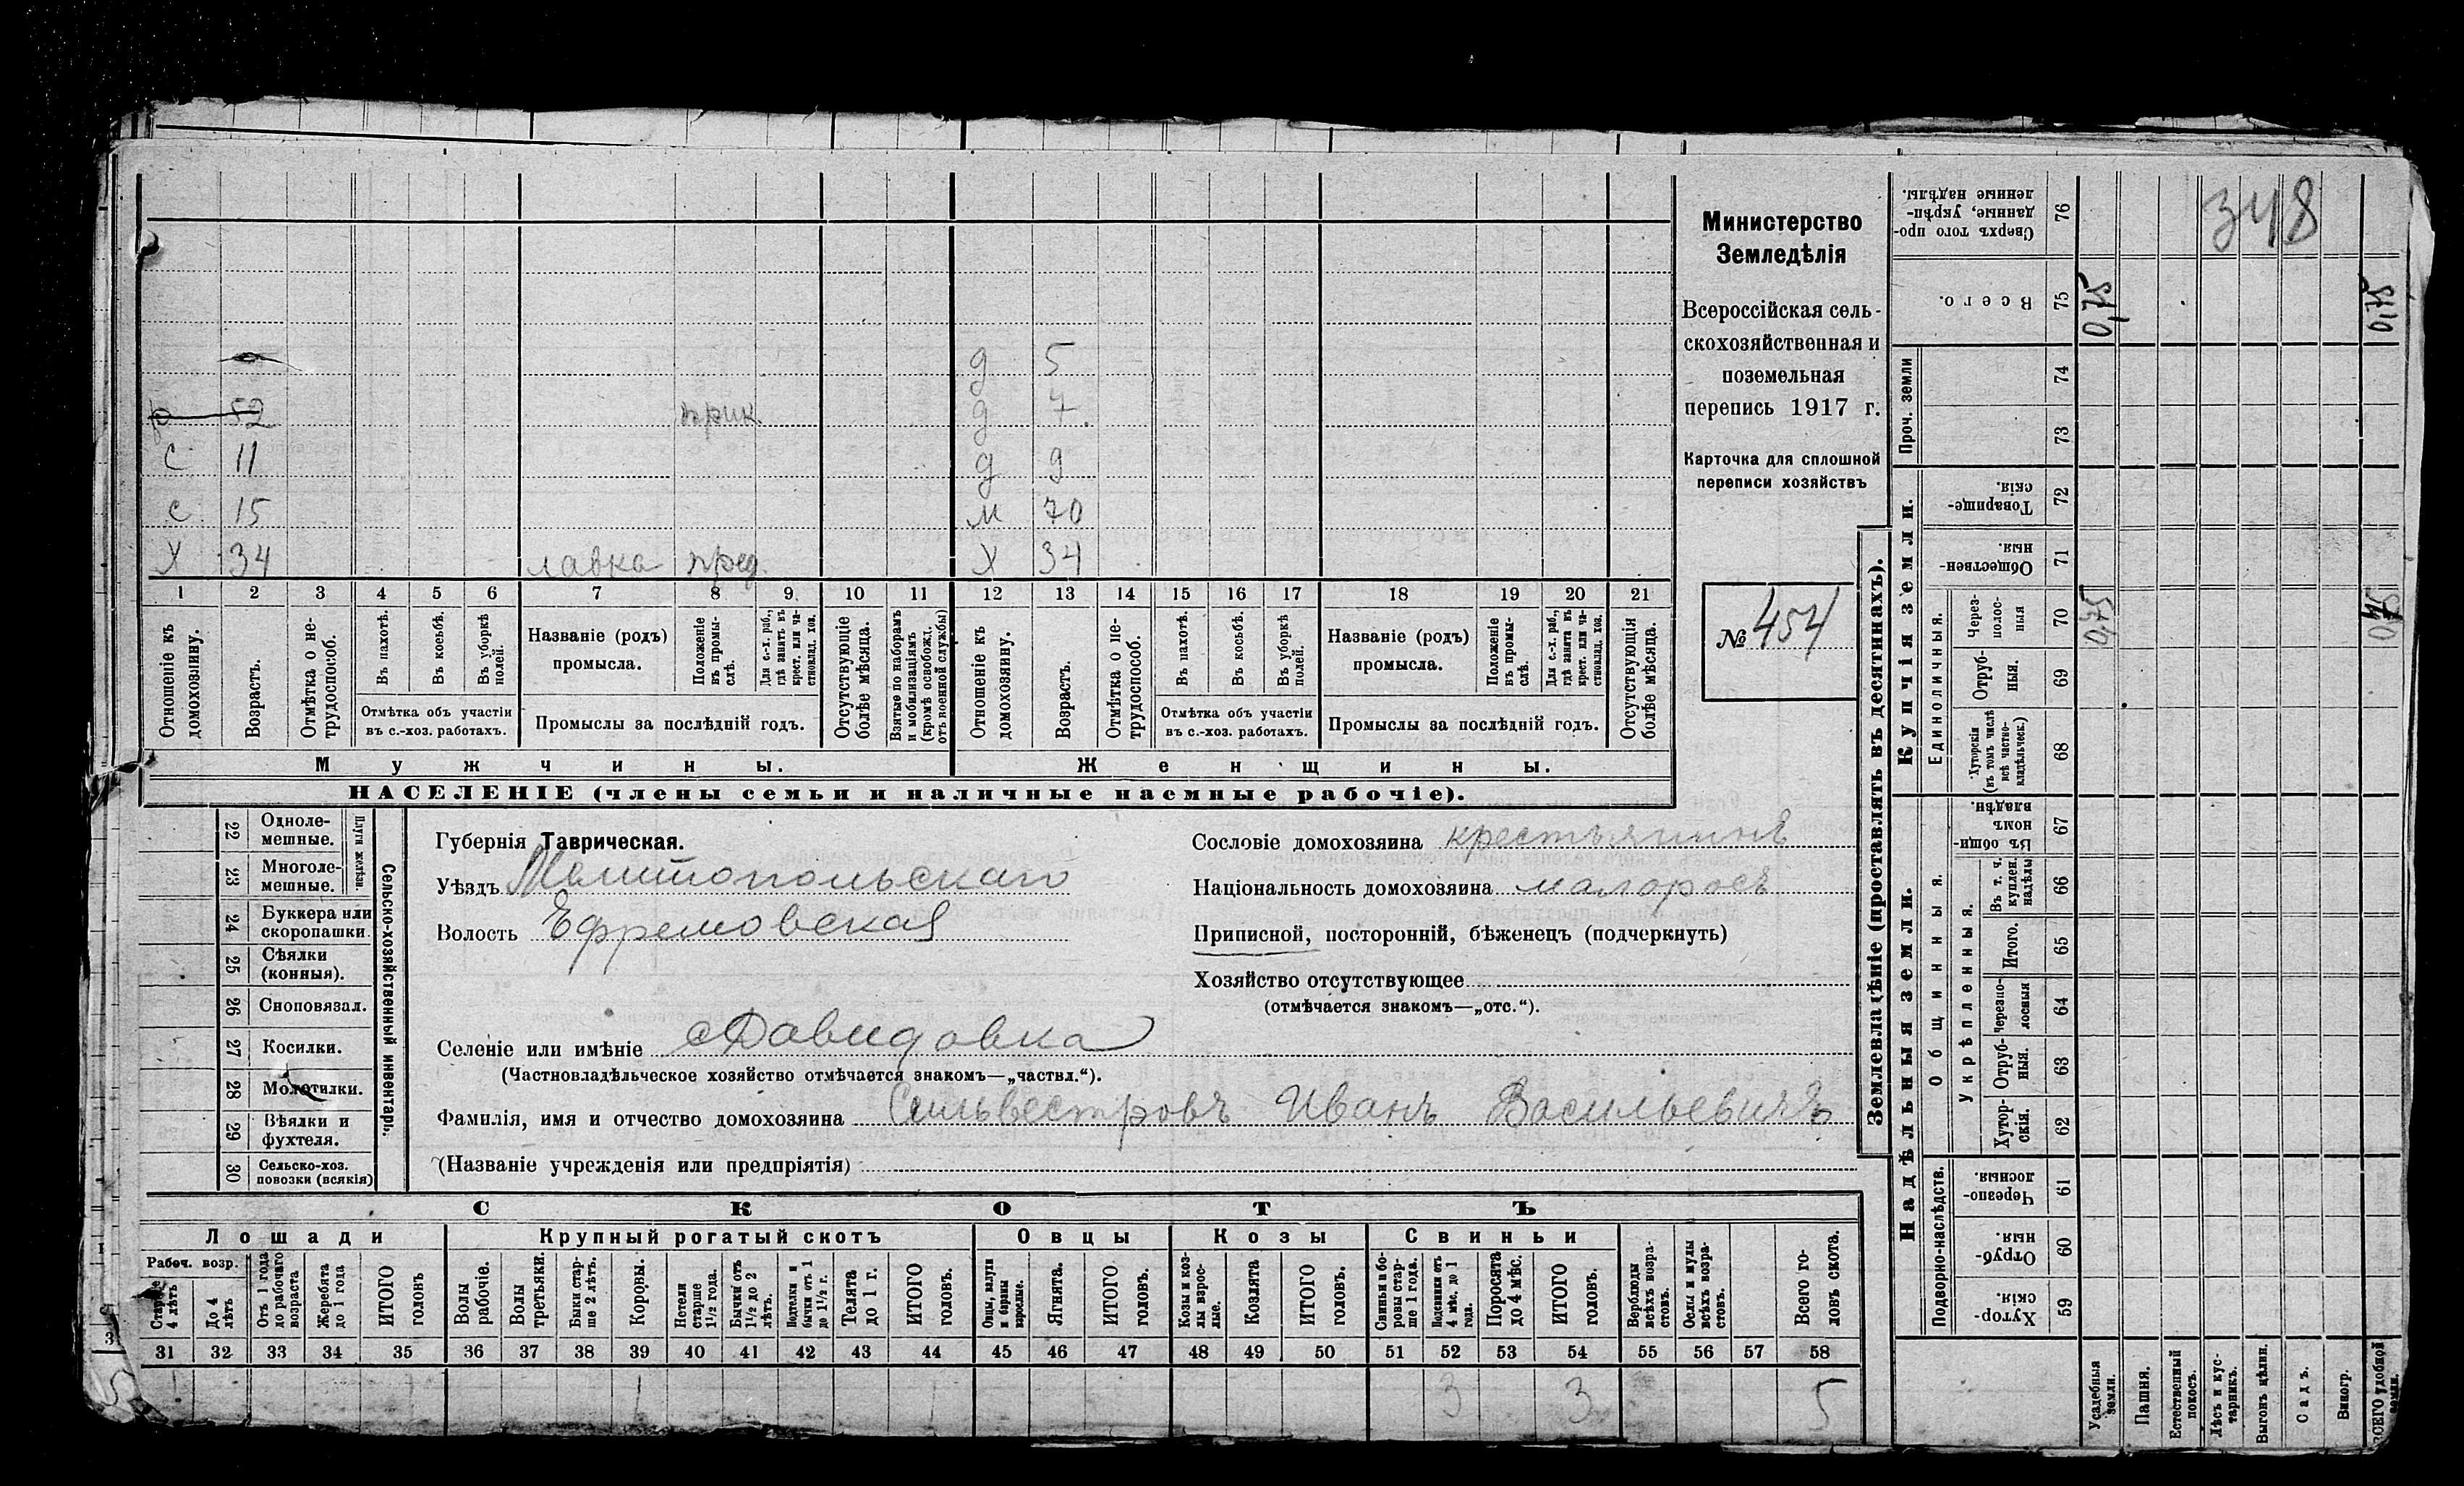 348
Министерство
Земледѣлія
Всероссійская сель-
скохозяйственная и
поземельная
перепись 1917 г.
Карточка для сплошной
переписи хозяйствъ
№ 454
д 5
р 52 прик. д 7
с 11 д 9
с 15 м 70
Х 34 лавка пред. Х 34
1 2 3 4 5 6 7 8 9 10 11 12 13 14 15 16 17 18 19 20 21
Отношеніе къ домохозяину.
Возрастъ.
Отмѣтка о не-трудоспособ.
Въ пахотѣ.
Въ косьбѣ.
Въ уборкѣ полей.
Отмѣтка объ участіи
въ с.-хоз. работахъ.
Названіе (родъ)
промысла.
Положеніе въ промы-слѣ.
Для с.-х. раб., гдѣ занятъ въ крест. или ча-стновлад. хоз.
Промыслы за послѣдній годъ.
Отсутствующіе болѣе мѣсяца.
Взятые по наборамъ и мобилизаціямъ (кромѣ освобожд. отъ военной службы)
Отношеніе къ домохозяину.
Возрастъ.
Отмѣтка о не-трудоспособ.
Въ пахотѣ.
Въ косьбѣ.
Въ уборкѣ полей.
Отмѣтка объ участіи
въ с.-хоз. работахъ.
Названіе (родъ)
промысла.
Положеніе въ промы-слѣ.
Для с.-х. раб., гдѣ занята въ крест. или ча-стновлад. хоз.
Промыслы за послѣдній годъ.
Отсутствующія болѣе мѣсяца.
Мужчины. Женщины.
НАСЕЛЕНІЕ (члены семьи и наличные наемные рабочіе).
22 Одноле-мешные.
23 Многоле-мешные.
Плуги желѣзн.
24 Буккера или скоропашки.
25 Сѣялки (конныя).
26 Сноповязал.
27 Косилки.
28 Молотилки.
29 Вѣялки и фухтеля.
30 Сельско-хоз. повозки (всякія)
Сельско-хозяйственный инвентарь.
Губернія Таврическая.
Уѣздъ Мелитопольскаго
Волость Ефремовская
Селеніе или имѣніе с Давидовка
(Частновладѣльческое хозяйство отмѣчается знакомъ—„частвл.“).
Фамилія, имя и отчество домохозяина Сильвестровъ Иванъ Васильевичъ
(Названіе учрежденія или предпріятія)
Сословіе домохозяина крестьянинъ
Національность домохозяина малоросъ
Приписной, посторонній, бѣженецъ (подчеркнуть)
Хозяйство отсутствующее
(отмѣчается знакомъ—„отс.“).
СКОТЪ
Лошади Крупный рогатый скотъ Овцы Козы Свиньи
Рабоч. возр.
Старше 4 лѣтъ
До 4 лѣтъ
Отъ 1 года до рабочаго возраста
Жеребята до 1 года
ИТОГО головъ
Волы рабочіе.
Волы третьяки.
Быки стар-ше 2 лѣтъ.
Коровы.
Нетели старше 1½ года.
Бычки отъ 1½ до 2 лѣтъ.
Подтелки и бычки отъ 1 до 1½ г.
Телята до 1 г.
ИТОГО головъ.
Овцы, валухи и бараны взрослые.
Ягнята.
ИТОГО головъ.
Козы и коз-лы взрос-лые.
Козлята
ИТОГО головъ.
Свиньи и бо-ровы стар-ше 1 года.
Подсвинки отъ 4 мѣс. до 1 года.
Поросята до 4 мѣс.
ИТОГО головъ.
Верблюды всѣхъ возра-стовъ.
Ослы и мулы всѣхъ возра-стовъ.
Всего го-ловъ скота.
31 32 33 34 35 36 37 38 39 40 41 42 43 44 45 46 47 48 49 50 51 52 53 54 55 56 57 58
1 1 1 1 3 3 5
Землевладѣніе (проставлять въ десятинахъ).
Купчія земли.
Надѣльныя земли.
Сверхъ того про-данные, укрѣп-ленные надѣлы. 76
Всего. 75 0,75 0,75
Проч. земли 74 73
Товарище-скія. 72
Обществен-ныя. 71
Единоличныя.
Через-полос-ныя 70 0,75
Отруб-ныя. 69
Хуторскія (въ томъ числѣ всѣ частно-владѣльческ.) 68
Общинныя.
Въ общин-номъ владѣн. 67
Укрѣпленныя.
Въ т. ч. куплен. надѣлы 66
Итого. 65
Черезпо-лосныя 64
Отруб-ныя. 63
Хутор-скія. 62
Подворно-наслѣдств.
Черезпо-лосныя 61
Отруб-ныя. 60
Хутор-скія. 59
Усадебныя земли.
Пашня.
Естественный покосъ.
Лѣсъ и кус-тарник.
Выгонъ цѣлин.
Садъ.
Виногр.
ВСЕГО удобной земли.